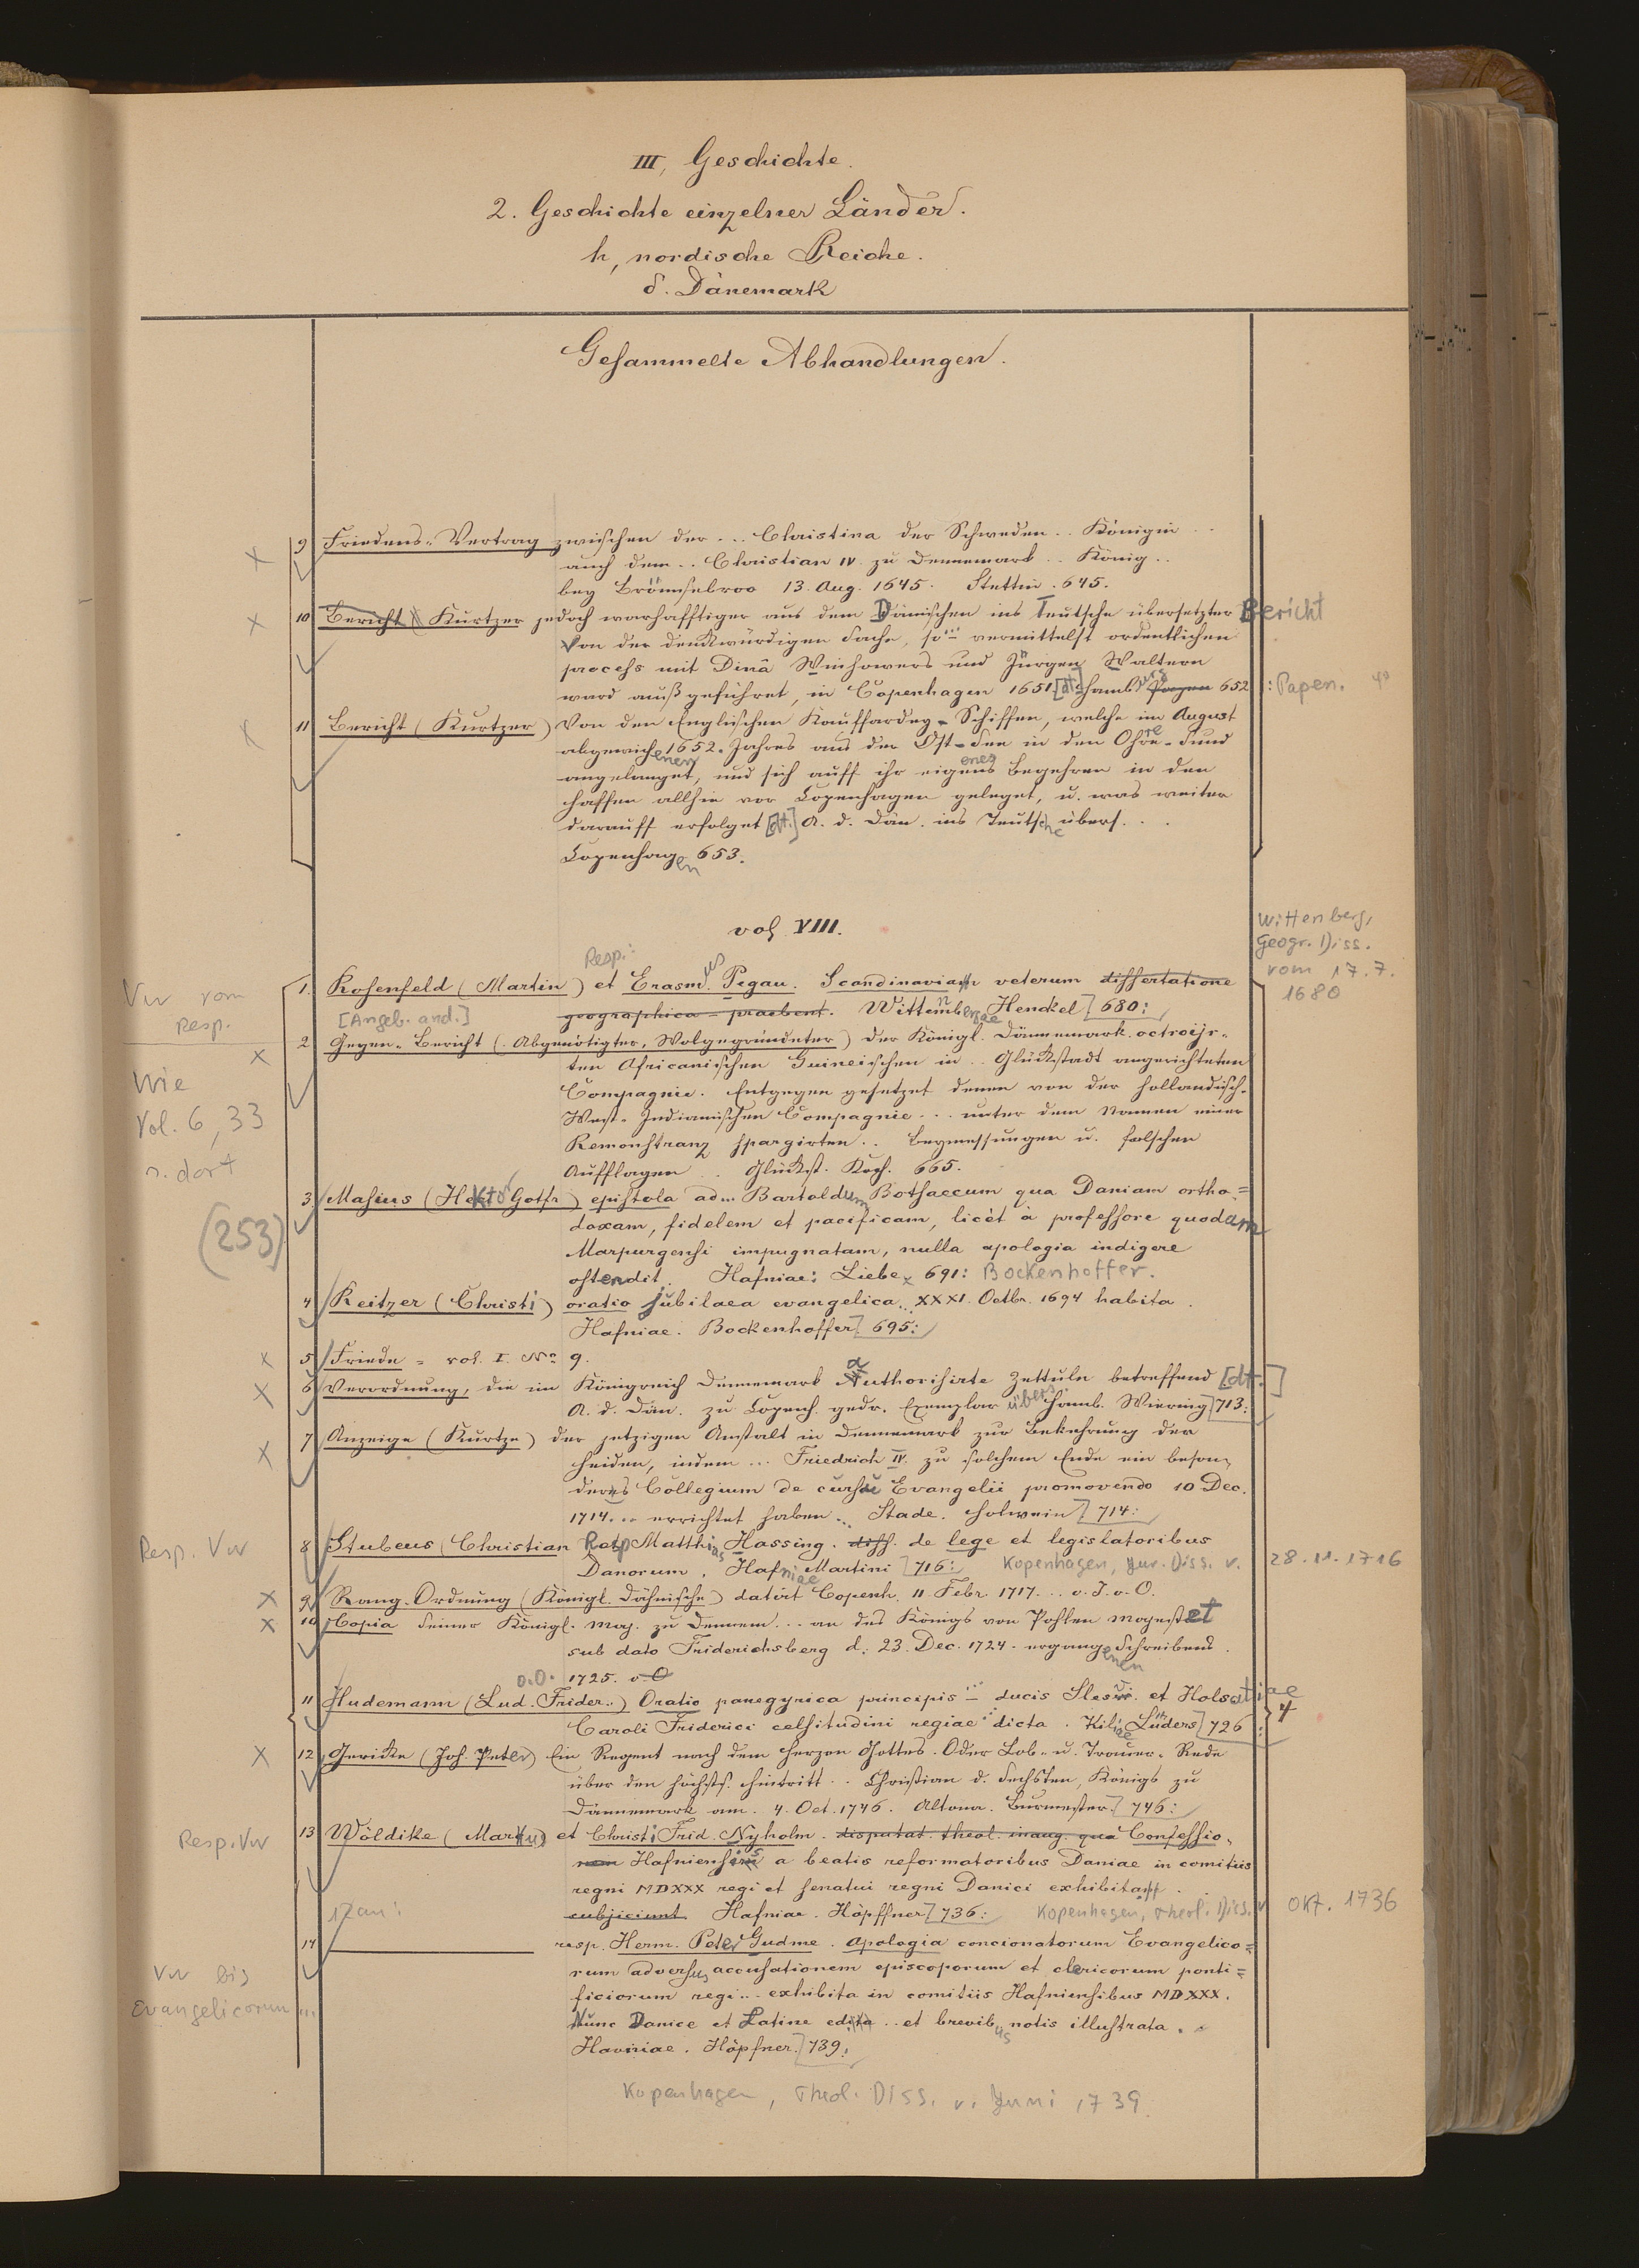 III, Geschichte.
2. Geschichte einzelner Länder.
h, nordische Reiche.
δ. Dänemark
Gesammelte Abhandlungen.
x 9 Friedens-Vertrag zwischen der ... Christina der Schweden .. Königin ..
auch dem .. Christian IV. zu Dennemark .. König ..
bey Brömsebroo 13. Aug. 1645. Stettin. 645.
x 10 Bericht Kurtzer jedoch warhafftiger aus dem Dänischen ins Teutsche übersetzter Bericht
Von der denkwürdigen Sache, so ... vermittelst ordentlichen
process mit Dinâ Winhowers und Jürgen Waltern
ward außgeführet, in Copenhagen 1651. [dt.] Hamb. 652 : Papen. 4°
x 11 Bericht (Kurtzer) Von den Englischen Kauffardey-Schiffen, welche im August
abgewichenen 1652. Jahres aus der Ost-See in den Ohre-Sund
angelanget, und sich auff ihr eigenes Begehren in den
Haffen allhie vor Copenhagen geleget, u. was weiter
darauff erfolget [dt.] A. d. Dän. ins Teutsche übers. . .
Copenhagen 653.
vol. VIII.
Wittenberg,
Geogr. Diss.
vom 17. 7.
1680
Resp.:
Vw vom
Resp.
1. Rosenfeld (Martin) et Erasmus Pegau. Scandinaviam veterum dissertatione
[Angeb. and.]
geographica - praebent. Wittenbergae Henckel] 680:
x 2 Gegen-Bericht (Abgenötigter, Wolgegründeter) der Königl. Dännemark. octroijr-
ten Africanischen Guineischen in .. Glückstadt angerichteten
Compagnie. Entgegen gesetzet denen von der Holländisch-
West-Indianischen Compagnie ... unter dem Namen einer
Remonstranz spargirten .. Beymessungen u. falschen
Aufflagen . Glückst. Koch. 665.
Wie
Vol. 6, 33
s. dort
(253)
3. Masius (Hector Gotfr.) epistola ad ... Bartoldum Botsaccum qua Daniam ortho=
doxam, fidelem et pacificam, licèt à professore quodam
Marpurgensi impugnatam, nulla apologia indigere
ostendit. Hafniae: Liebe x 691: Bockenhoffer.
4 Reitzer (Christi) oratio jubilaea evangelica .. XXXI. Octbr. 1694 habita.
Hafniae. Bockenhoffer] 695:
x 5 Friede = vol. I. No 9.
x 6 Verordnung, die im Königreich Dennemark Authorisirte Zettuln betreffend [dt.]
A. d. Dän. zu Copenh. gedr. Exemplar übers. Hamb. Wiering] 713:
x 7 Anzeige (Kurtze) der jetzigen Anstalt in Dennemark zur Bekehrung der
Heiden, indem ... Friedrich IV. zu solchem Ende ein beson-
deres Collegium de cursu Evangelii promovendo 10 Dec.
1714. .. errichtet haben .. Stade. Holwein] 714:
Resp. Vw 8 Stubeus (Christian Resp Matthias Hassing. diss. de lege et legislatoribus
Danorum. Hafniae Martini] 716: Kopenhagen, Jur. Diss. v. 28.11.1716
x 9 Rang-Ordnung (Königl. Dähnische) datirt Copenh. 11 Febr. 1717. .. o. J. o. O.
x 10 Copia Seiner Königl. Maj. zu Dennem. .. an des Königs von Pohlen Majestet
sub dato Friderichsberg d. 23. Dec. 1724. ergangenen Schreibens.
o.O. 1725. o O
11 Hudemann (Lud. Frider.) Oratio panegyrica principis ... ducis Slesvi. et Holsatiae
Caroli Friderici celsitudini regiae dicta. Kiliae Lüders] 726: 4
x 12 Gericke (Joh. Peter) Ein Regent nach dem Herzen Gottes. Oder Lob- u. Trauer-Rede
über den höchsts. Hintritt .. Christian d. Sechsten, Königs zu
Dännemark am. 4. Oct. 1746. Altona. Burmester] 746:
Resp. Vw 13 Wöldike (Marcus) et Christi Frid. Nyholm. disputat. theol. inaug. qua Confessio-
nem Hafniensis a beatis reformatoribus Daniae in comitiis
regni MDXXX regi et senatui regni Danici exhibitam.
subjiciunt. Hafniae. Höpffner] 736: Kopenhagen, Theol. Diss. v Okt. 1736
14 resp. Herm. Peter Gudme. Apologia concionatorum Evangelico=
rum adversus accusationem episcoporum et clericorum ponti=
Vw bis
Evangelicorum ...
ficiorum regi .. exhibita in comitiis Hafniensibus MDXXX.
Nunc Danice et Latine edita .. et brevibus notis illustrata.
Havniae. Höpfner] 739:
Kopenhagen, Theol. Diss. v. Juni 1739.